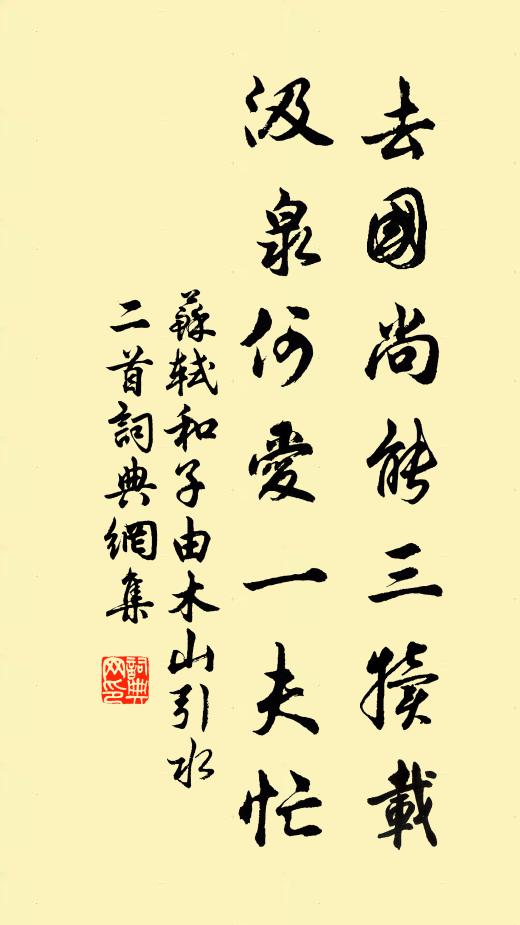 去國尚能三犢載
汲泉何愛一夫忙
蘇軾和子由木山引水
二首詞典網集
詞典網印